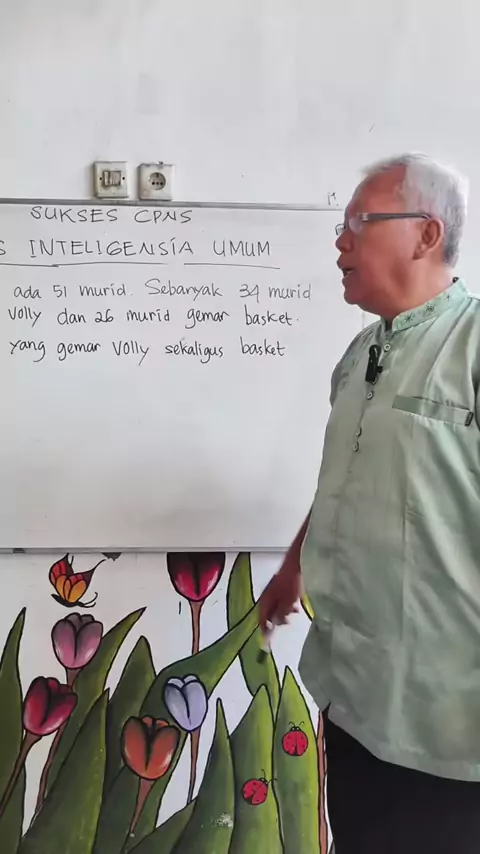 SUKSES CPNS
S INTELIGENSIA UMUM
ada 51 murid. Sebanyak 34 murid
volly dan 26 murid gemar basket.
yang gemar volly sekaligus basket